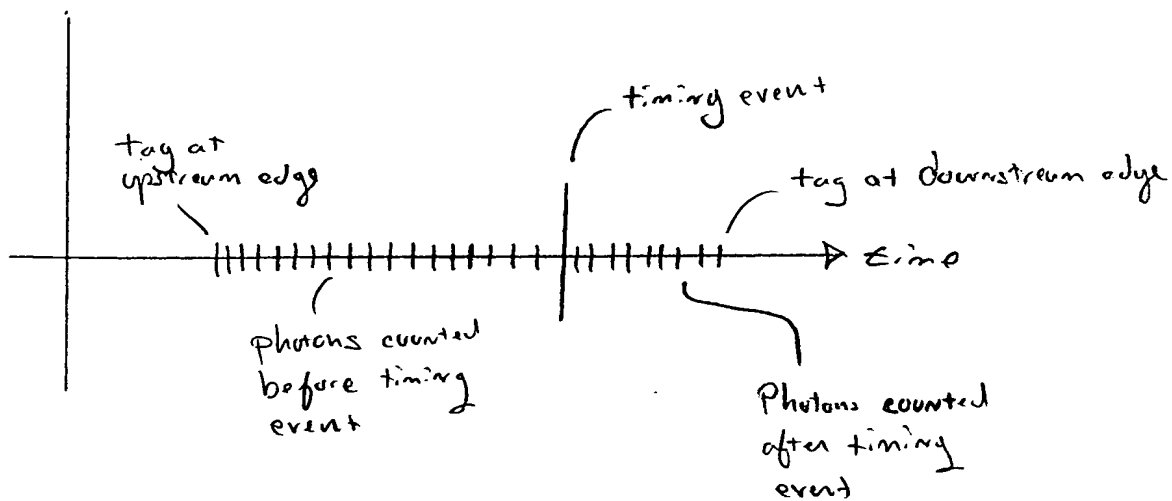 timing event
tag at
upstream edge
tag at downstream edge
time
photons counted
before timing
event
Photons counted
after timing
event